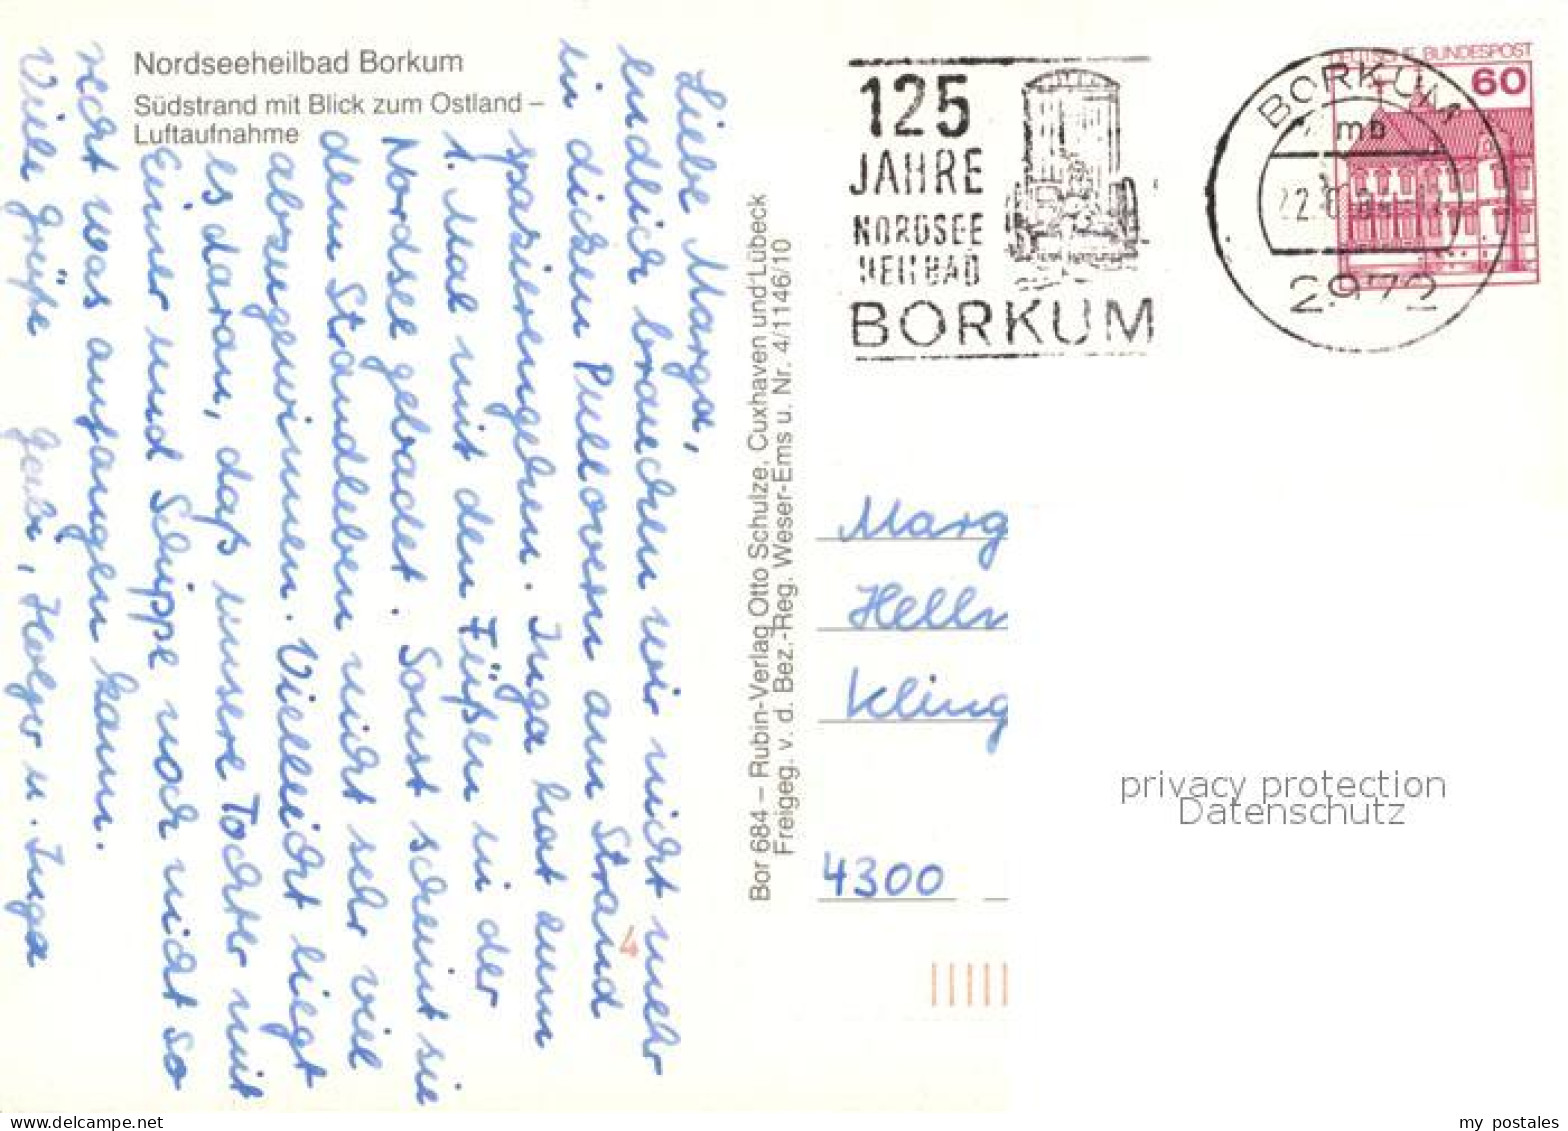 Nordseeheilbad Borkum
Südstrand mit Blick zum Ostland –
Luftaufnahme
Liebe Marga,
endlich brauchen wir nicht mehr
in dicken Pullovern am Strand
spazierengehen. Inga hat zum
1. Mal mit den Füßen in der
Nordsee gebadet. Sonst scheint sie
dem Strandleben nicht sehr viel
abzugewinnen. Vielleicht liegt
es daran, daß unsere Tochter mit
Eimer und Schippe noch nicht so
recht was anfangen kann.
Viele Grüße Gabi, Holger u. Inga
4
Bor 684 – Rubin-Verlag Otto Schulze, Cuxhaven und Lübeck
Freigeg. v. d. Bez.-Reg. Weser-Ems u. Nr. 4/1146/10
125
JAHRE
NORDSEE
HEILBAD
BORKUM
DEUTSCHE BUNDESPOST
60
BORKUM
mb
2972
Marg
Helln
Kling
4300
privacy protection
Datenschutz
my postales